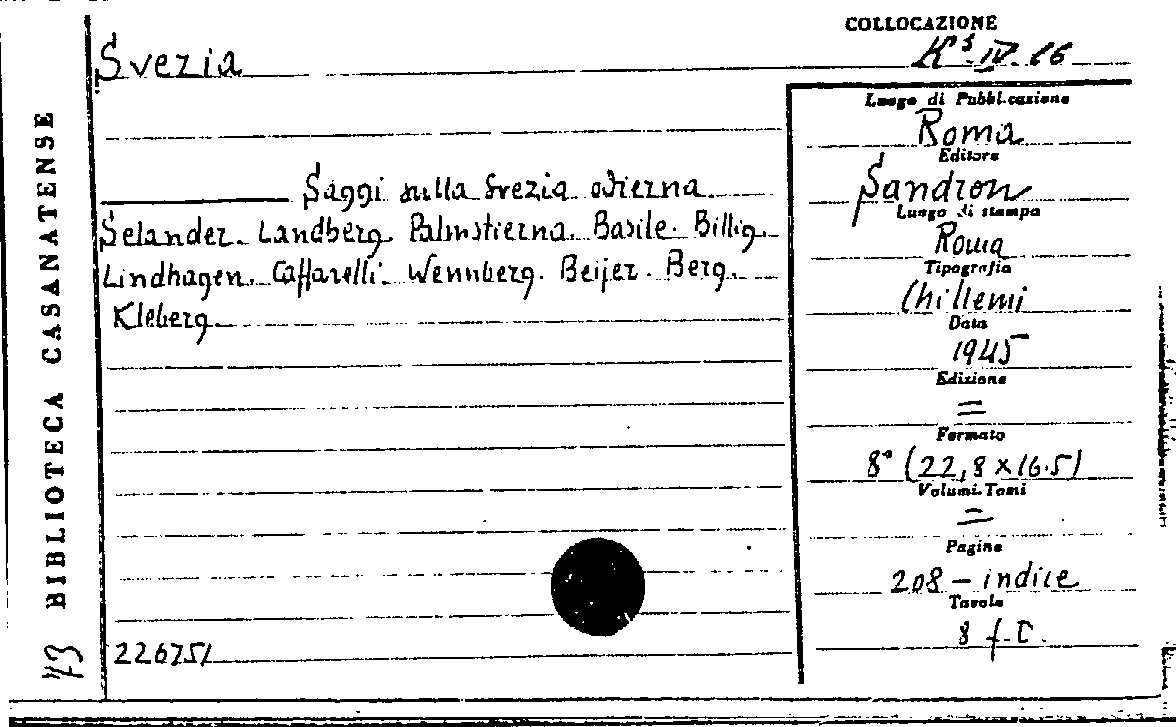 COLLOCAZIONE
Svezia
Ks. IV. 26
Luogo di Pubblicazione
Roma
Editore
Saggi sulla Svezia odierna
Sandron
Luogo di stampa
Selander. Landberg. Palmstierna. Basile. Billig.
Roma
Tipografia
Lindhagen. Caffarelli. Wennberg. Beijer. Berg.
Chillemi
Kleberg
Data
1945
Edizione
=
Formato
8° (22,8 x 16.5)
Volumi-Tomi
=
Pagine
208 - indice
Tavole
8 f.t.
226751
73 BIBLIOTECA CASANATENSE